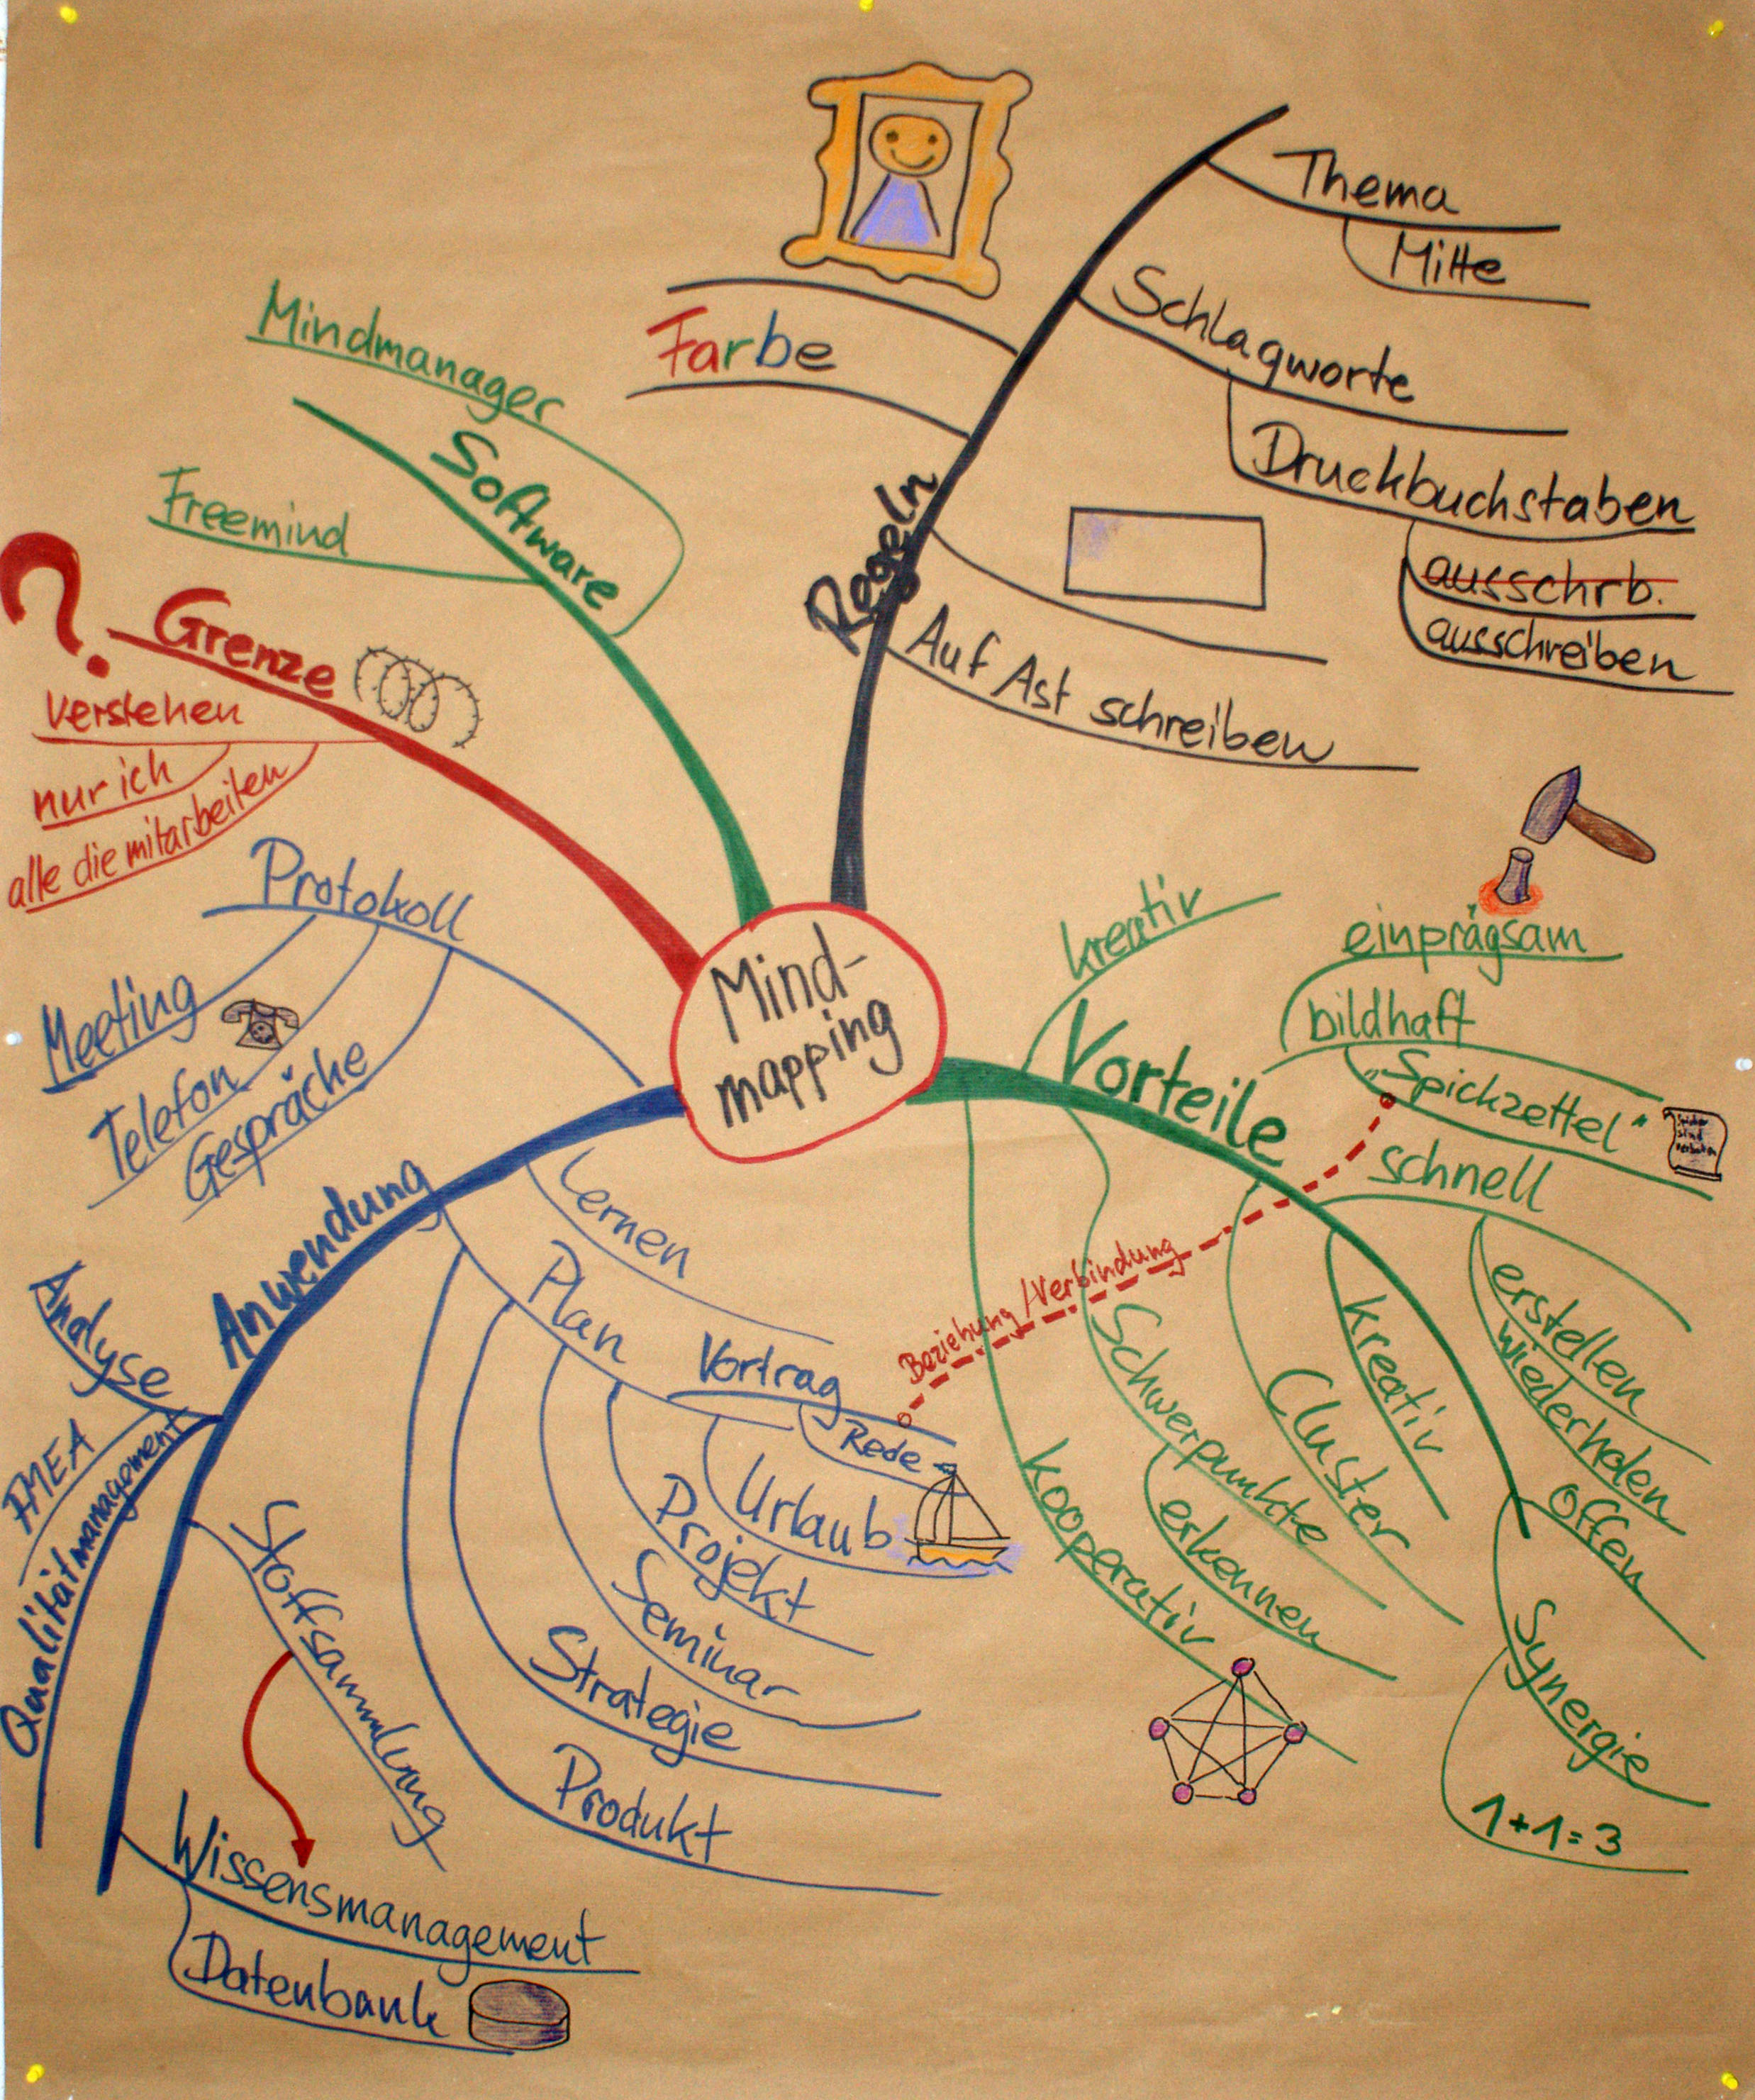 Mind-
mapping
Regeln
Thema
Mitte
Schlagworte
Druckbuchstaben
ausschrb.
ausschreiben
Farbe
Auf Ast schreiben
Software
Mindmanager
Freemind
?
Grenze
verstehen
nur ich
alle die mitarbeiten
Vorteile
kreativ
einprägsam
bildhaft
„Spickzettel"
schnell
erstellen
wiederholen
offen
Synergie
1+1=3
kreativ
Cluster
Schwerpunkte
erkennen
kooperativ
Beziehung/Verbindung
Anwendung
Protokoll
Meeting
Telefon
Gespräche
Lernen
Plan
Vortrag
Rede
Urlaub
Projekt
Seminar
Strategie
Produkt
Analyse
FMEA
Qualitätmanagement
Stoffsammlung
Wissensmanagement
Datenbank